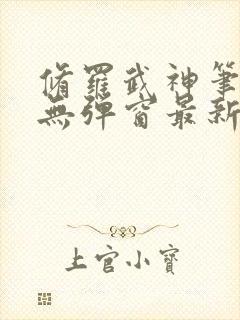 脩羅武神筆
無彈窗最新
上官小寶